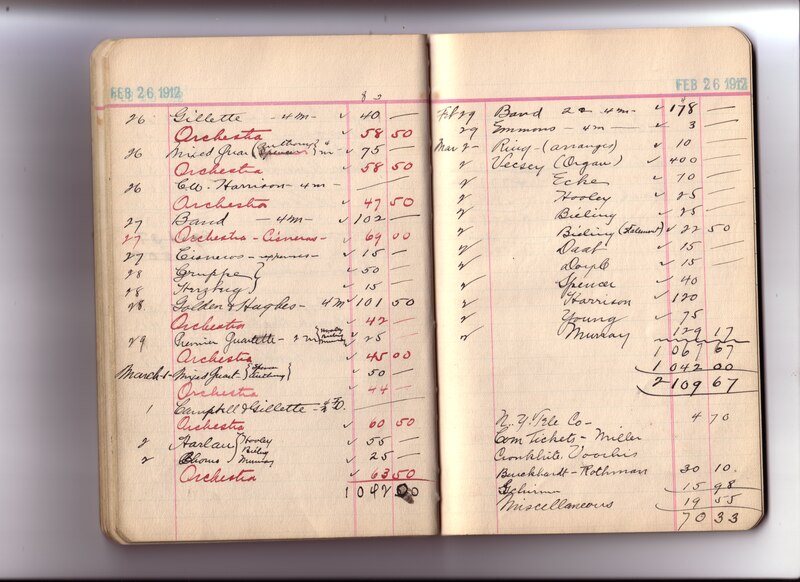 FEB 26 1912
26 Gillette - 4 m - ✓ 40 —
Orchestra ✓ 58 50
26 Mixed Quar ( Anthony & ) m - ✓ 75 —
Orchestra ✓ 58 50
26 Harrison - 4 m -
Orchestra ✓ 47 50
27 Band - 4 m - ✓ 102 —
27 Orchestra - Cisneros - ✓ 69 00
27 Cisneros - expenses - ✓ 15 —
28 Gruppe } ✓ 50 —
28 Herzberg } ✓ 15 —
28 Golden & Hughes - 4 m ✓ 101 50
Orchestra ✓ 42 —
29 Premier Quartette - 2 m { Hooley Bieling Murray } ✓ 25 —
Orchestra ✓ 45 00
March 1 - Mixed Quart } Anthony } ✓ 50 —
Orchestra ✓ 44 —
1 Campbell & Gillette -
Orchestra ✓ 60 50
2 Harlan } Hooley ✓ 55 —
2 } Bieling Murray ✓ 25 —
Orchestra ✓ 63 50
1042 00
FEB 26 1912
Feb 29 Band 22 4 m - ✓ 178 —
29 Emmons - 4 m — ✓ 3 —
Mar 2 - Ring - (arranges) ✓ 10 —
2 Vecsey (Organ) ✓ 400 —
2 Ecke ✓ 10 —
2 Hooley ✓ 25 —
2 Bieling ✓ 25 —
2 Bieling (Statement) ✓ 22 50
2 Daab ✓ 15 —
2 Doyle ✓ 15 —
2 Spencer ✓ 40
2 Harrison ✓ 120
2 Young ✓ 75
2 Murray 129 17
1 067 67
1 042 00
2 109 67
N.Y. Tele Co - 4 70
Com Tickets - Miller
Cronkhite Voorhis
Burckhardt - Rothman 30 10
Schirmer 15 98
Miscellaneous 19 55
70 33